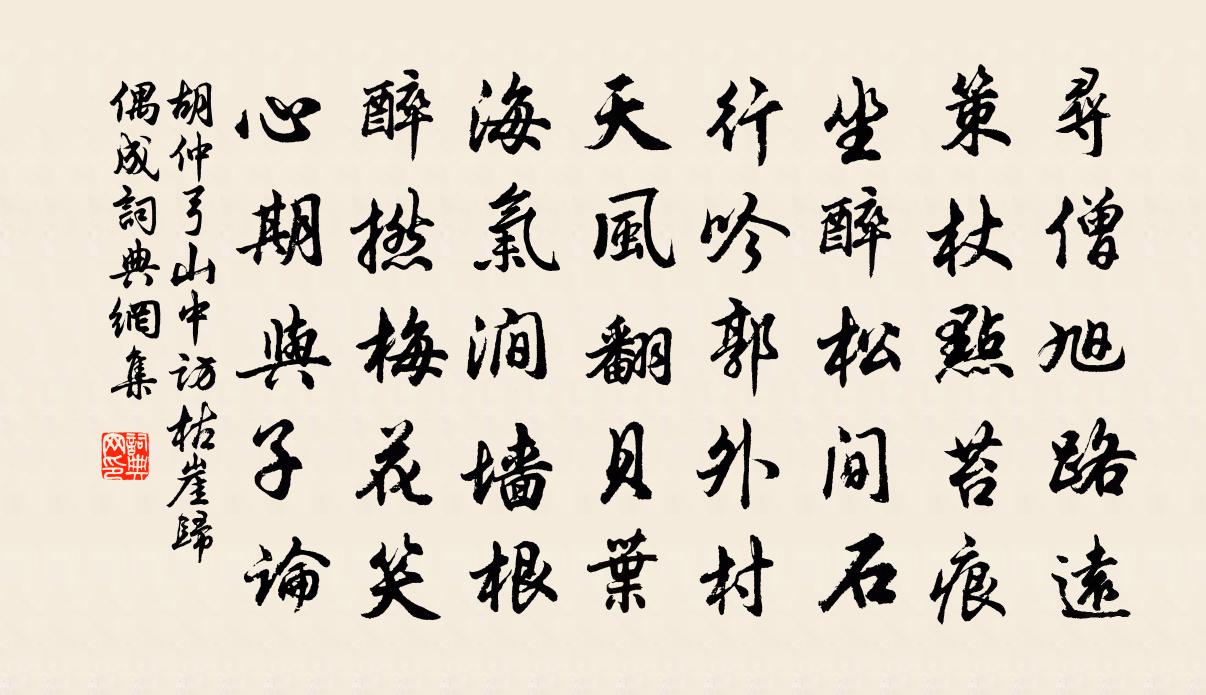 尋僧旭路遠
策杖點苔痕
坐醉松間石
行吟郭外村
天風翻貝葉
海氣澗墻根
醉撚梅花笑
心期與子論
胡仲弓山中訪枯崖歸
偶成詞典網集
詞典
网印